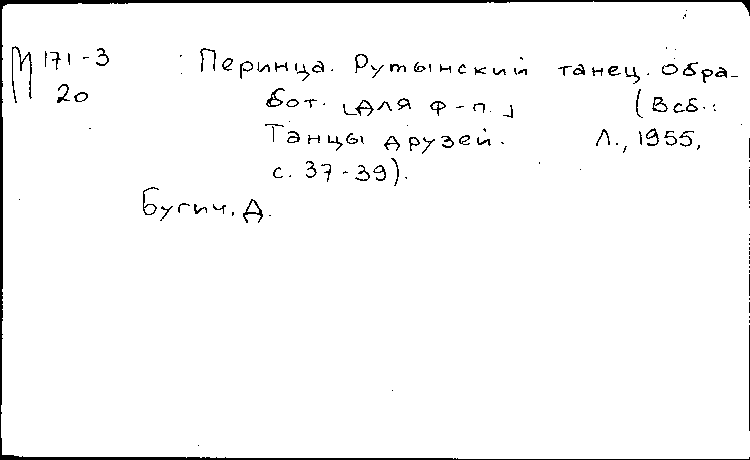 М 171-3 : Перинца. Рутынский танец. Обра-
20 бот. [для ф-п.] (В сб.:
Танцы друзей. Л., 1955,
с. 37-39).
Бугич. Д.